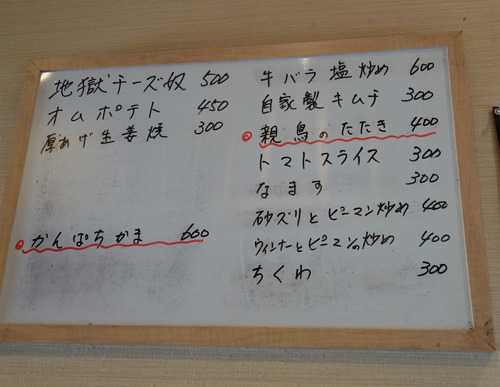 地獄チーズ奴 500
オムポテト 450
厚あげ生姜焼 300
かんぱちかま 600
牛バラ塩炒め 600
自家製キムチ 300
親鳥のたたき 400
トマトスライス 300
なます 300
砂ズリとピーマン炒め 400
ウィンナーとピーマンの炒め 400
ちくわ 300